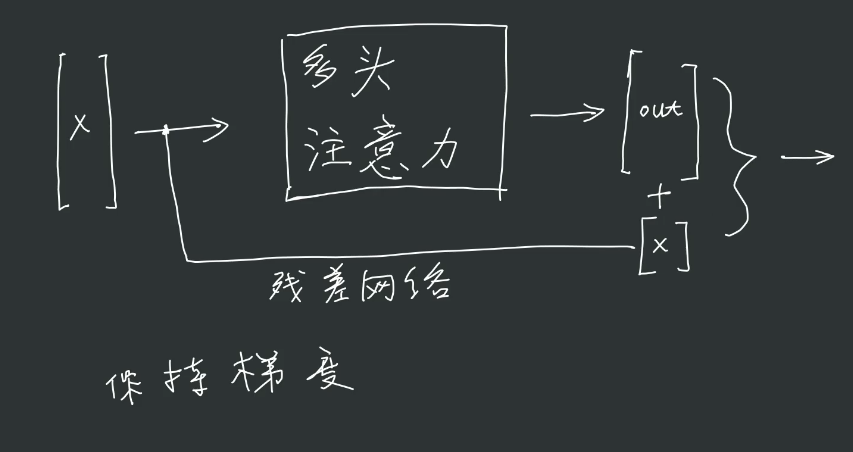 [x]
多头
注意力
[out]
+
[x]
残差网络
保持梯度